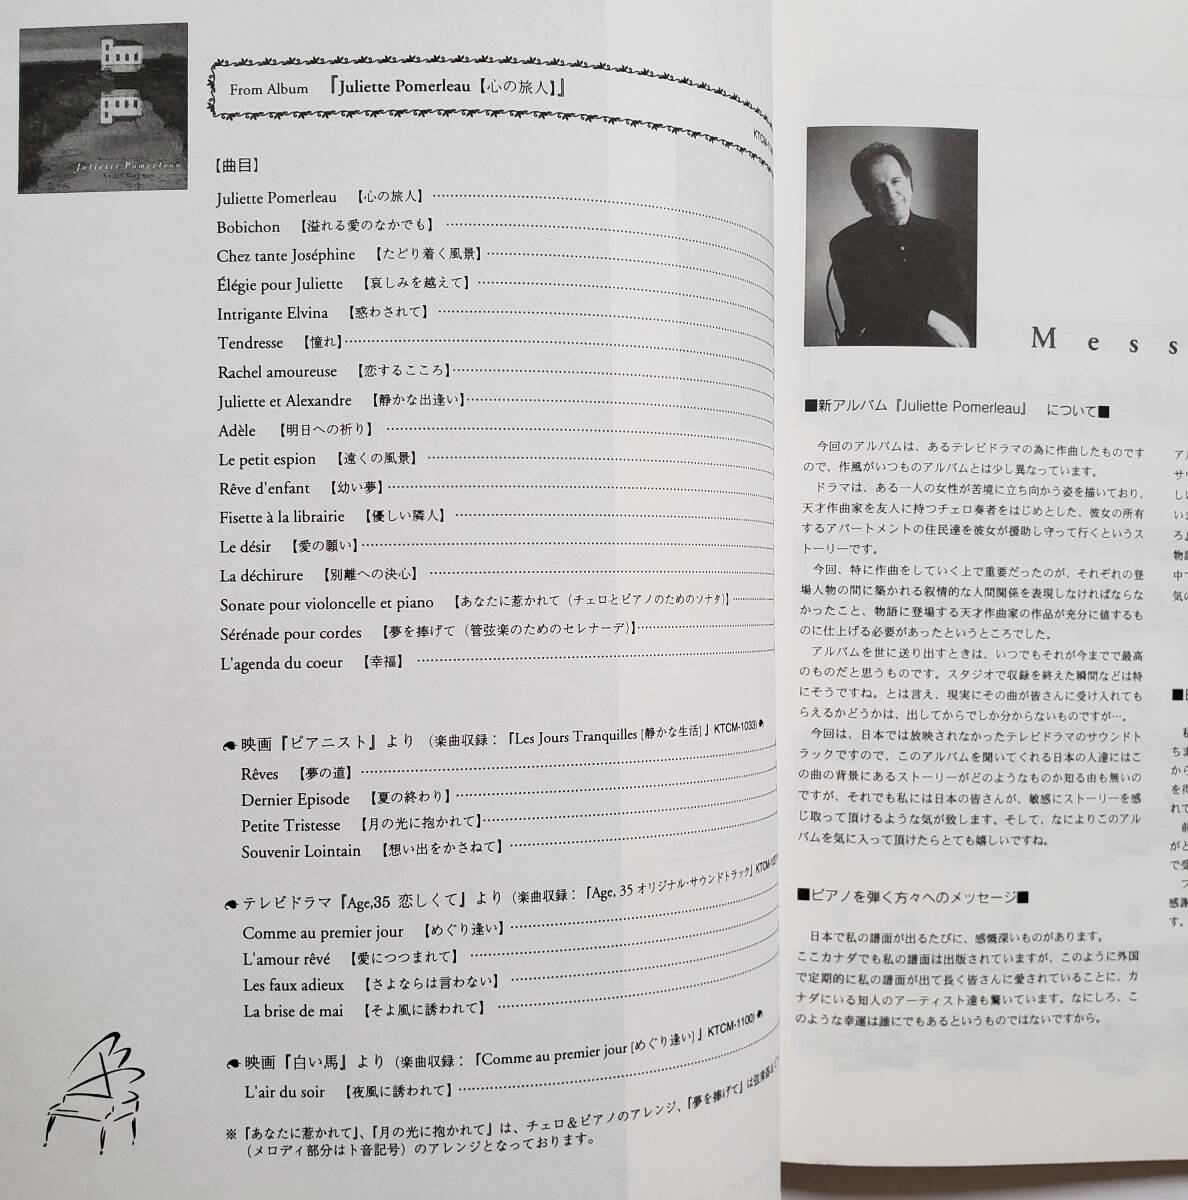 Juliette Pomerleau
André Gagnon
From Album 『Juliette Pomerleau【心の旅人】』
【曲目】
Juliette Pomerleau 【心の旅人】
Bobichon 【溢れる愛のなかでも】
Chez tante Joséphine 【たどり着く風景】
Élégie pour Juliette 【哀しみを越えて】
Intrigante Elvina 【惑わされて】
Tendresse 【憧れ】
Rachel amoureuse 【恋するこころ】
Juliette et Alexandre 【静かな出逢い】
Adèle 【明日への祈り】
Le petit espion 【遠くの風景】
Rêve d'enfant 【幼い夢】
Fisette à la librairie 【優しい隣人】
Le désir 【愛の願い】
La déchirure 【別離への決心】
Sonate pour violoncelle et piano 【あなたに惹かれて（チェロとピアノのためのソナタ）】
Sérénade pour cordes 【夢を捧げて（管弦楽のためのセレナーデ）】
L'agenda du coeur 【幸福】
映画『ピアニスト』より （楽曲収録：「Les Jours Tranquilles [静かな生活]」KTCM-1033）
Rêves 【夢の道】
Dernier Episode 【夏の終わり】
Petite Tristesse 【月の光に抱かれて】
Souvenir Lointain 【想い出をかさねて】
テレビドラマ『Age,35 恋しくて』より（楽曲収録：「Age, 35 オリジナル・サウンドトラック」
Comme au premier jour 【めぐり逢い】
L'amour rêvé 【愛につつまれて】
Les faux adieux 【さよならは言わない】
La brise de mai 【そよ風に誘われて】
映画『白い馬』より（楽曲収録：「Comme au premier jour [めぐり逢い]」KTCM-1100）
L'air du soir 【夜風に誘われて】
※「あなたに惹かれて」、「月の光に抱かれて」は、チェロ＆ピアノのアレンジ、「夢を捧げて」は
（メロディ部分はト音記号）のアレンジとなっております。
Mess
■新アルバム『Juliette Pomerleau』 について■
今回のアルバムは、あるテレビドラマの為に作曲したものです
ので、作風がいつものアルバムとは少し異なっています。
ドラマは、ある一人の女性が苦境に立ち向かう姿を描いており、
天才作曲家を友人に持つチェロ奏者をはじめとした、彼女の所有
するアパートメントの住民達を彼女が援助し守って行くというス
トーリーです。
今回、特に作曲をしていく上で重要だったのが、それぞれの登
場人物の間に築かれる叙情的な人間関係を表現しなければならな
かったこと、物語に登場する天才作曲家の作品が充分に値するも
のに仕上げる必要があったというところでした。
アルバムを世に送り出すときは、いつでもそれが今までで最高
のものだと思うものです。スタジオで収録を終えた瞬間などは特
にそうですね。とは言え、現実にその曲が皆さんに受け入れても
らえるかどうかは、出してからでしか分からないものですが…。
今回は、日本では放映されなかったテレビドラマのサウンドト
ラックですので、このアルバムを聞いてくれる日本の人達にはこ
の曲の背景にあるストーリーがどのようなものか知る由も無いの
ですが、それでも私には日本の皆さんが、敏感にストーリーを感
じ取って頂けるような気が致します。そして、なによりこのアル
バムを気に入って頂けたらとても嬉しいですね。
■ピアノを弾く方々へのメッセージ■
日本で私の譜面が出るたびに、感慨深いものがあります。
ここカナダでも私の譜面は出版されていますが、このように外国
で定期的に私の譜面が出て長く皆さんに愛されていることに、カ
ナダにいる知人のアーティスト達も驚いています。なにしろ、こ
のような幸運は誰にでもあるというものではないですから。